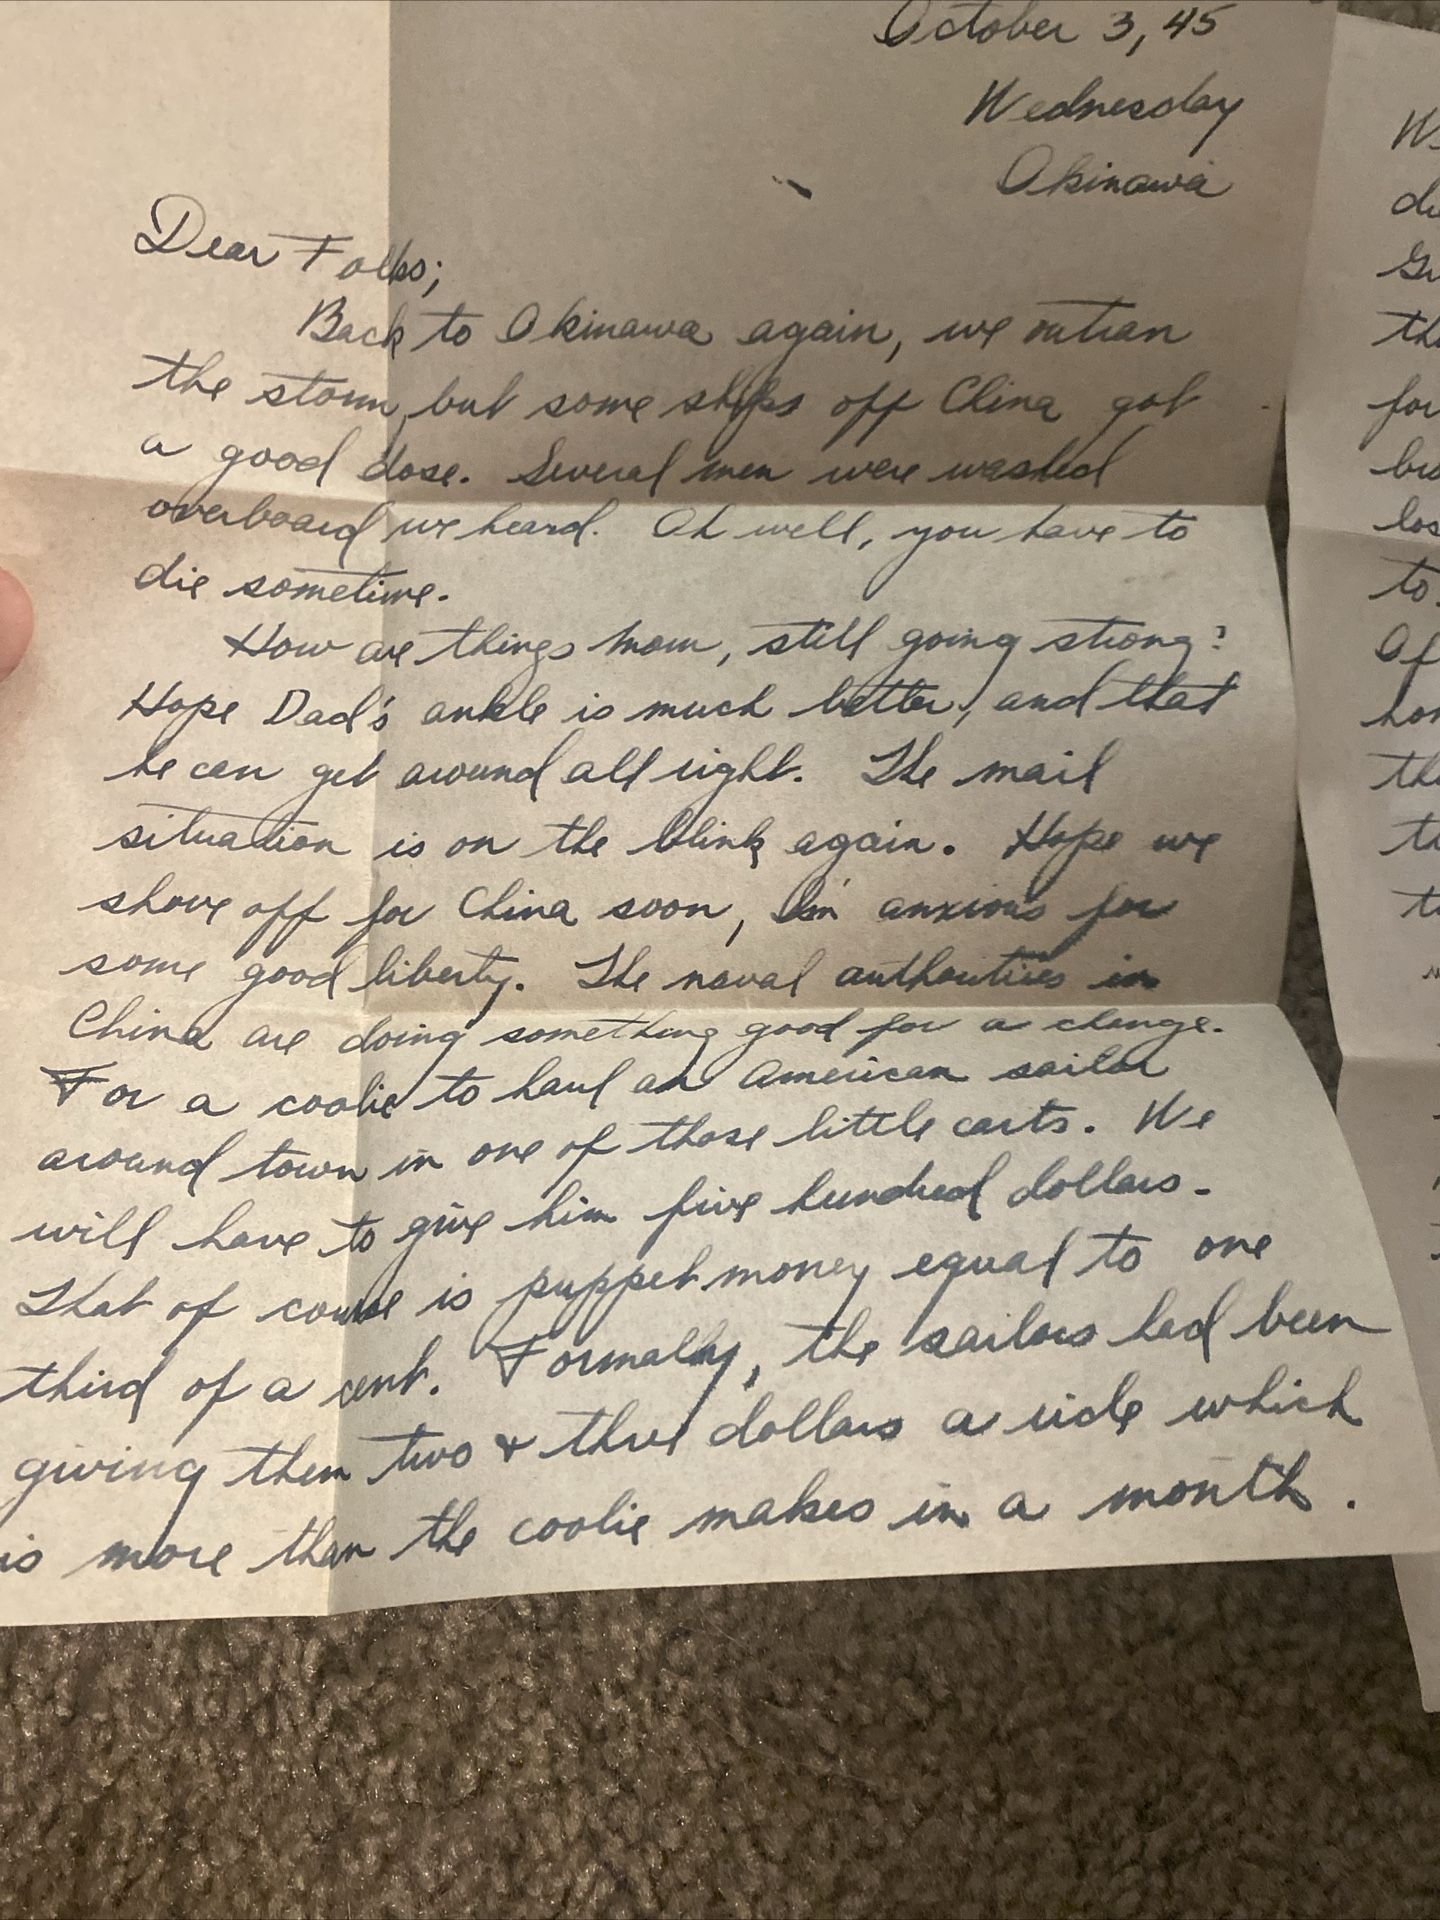 October 3, 45
Wednesday
Okinawa
Dear Folks;
Back to Okinawa again, we outran
the storm, but some ships off China got
a good dose. Several men were washed
overboard we heard. Oh well, you have to
die sometime.
How are things Mom, still going strong?
Hope Dad's ankle is much better, and that
he can get around all right. The mail
situation is on the blink again. Hope we
shove off for China soon, I'm anxious for
some good liberty. The naval authorities in
China are doing something good for a change.
For a coolie to haul an American sailor
around town in one of those little carts. We
will have to give him five hundred dollars.
That of course is puppet money equal to one
third of a cent. Formally, the sailors had been
giving them two & three dollars a ride which
is more than the coolie makes in a month.
We
for
to
Of